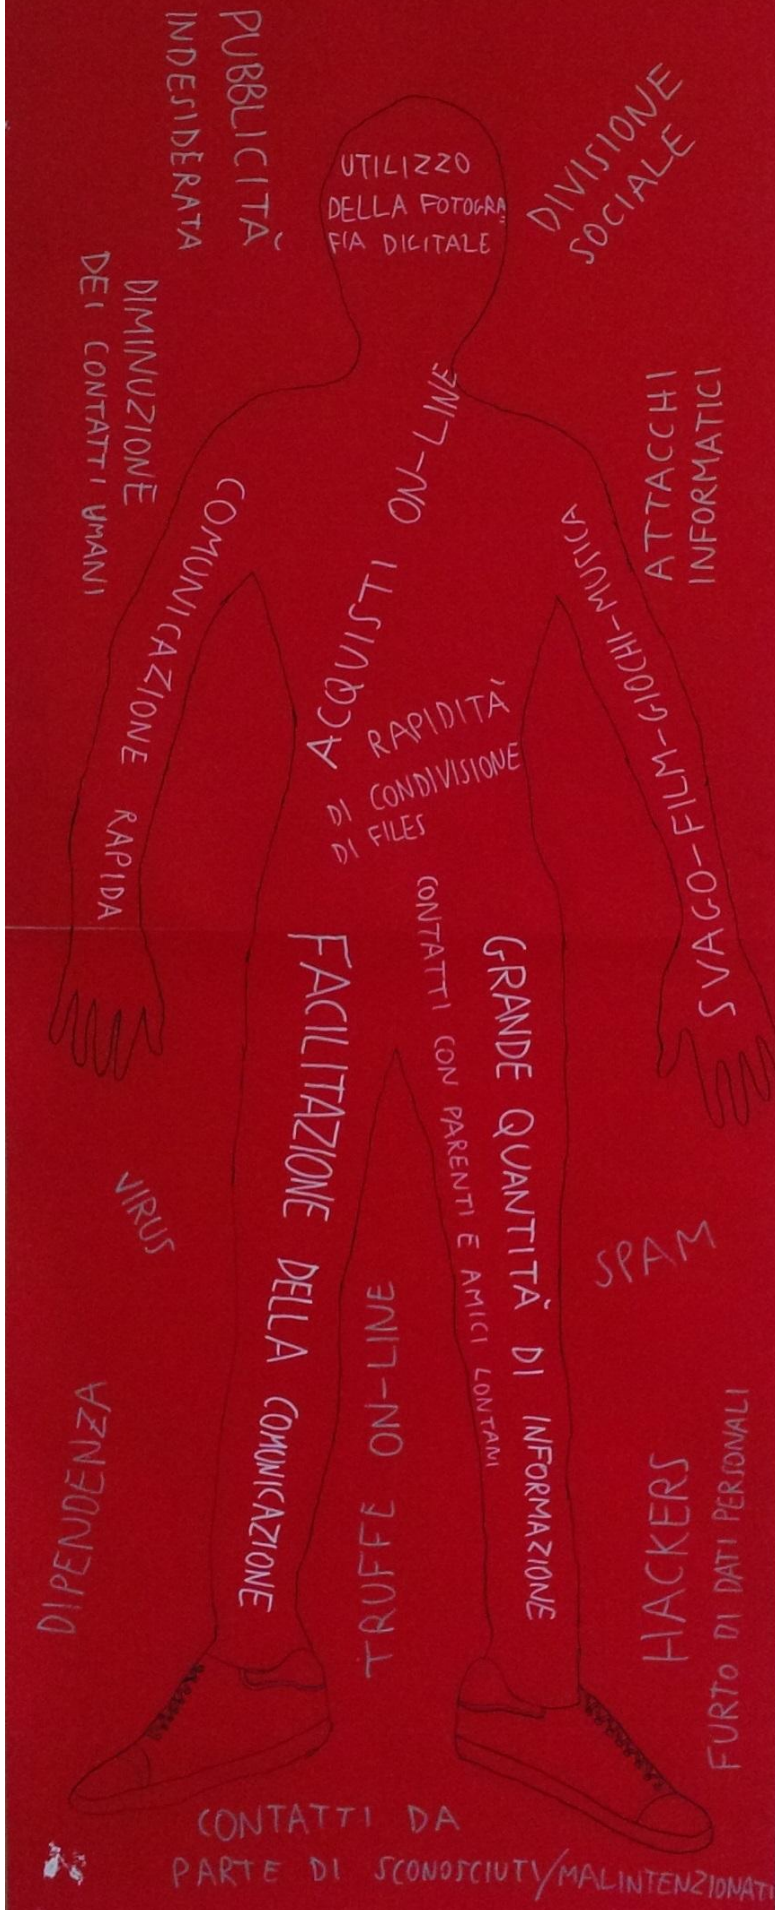 PUBBLICITÀ
INDESIDERATA
DIVISIONE
SOCIALE
UTILIZZO
DELLA FOTOGRA
FIA DIGITALE
DIMINUZIONE
DEI CONTATTI UMANI
ATTACCHI
INFORMATICI
COMUNICAZIONE RAPIDA
ACQUISTI ON-LINE
SVAGO-FILM-GIOCHI-MUSICA
RAPIDITÀ
DI CONDIVISIONE
DI FILES
FACILITAZIONE DELLA COMUNICAZIONE
CONTATTI CON PARENTI E AMICI LONTANI
GRANDE QUANTITÀ DI INFORMAZIONE
VIRUS
SPAM
DIPENDENZA
TRUFFE ON-LINE
HACKERS
FURTO DI DATI PERSONALI
CONTATTI DA
PARTE DI SCONOSCIUTI/MALINTENZIONATI